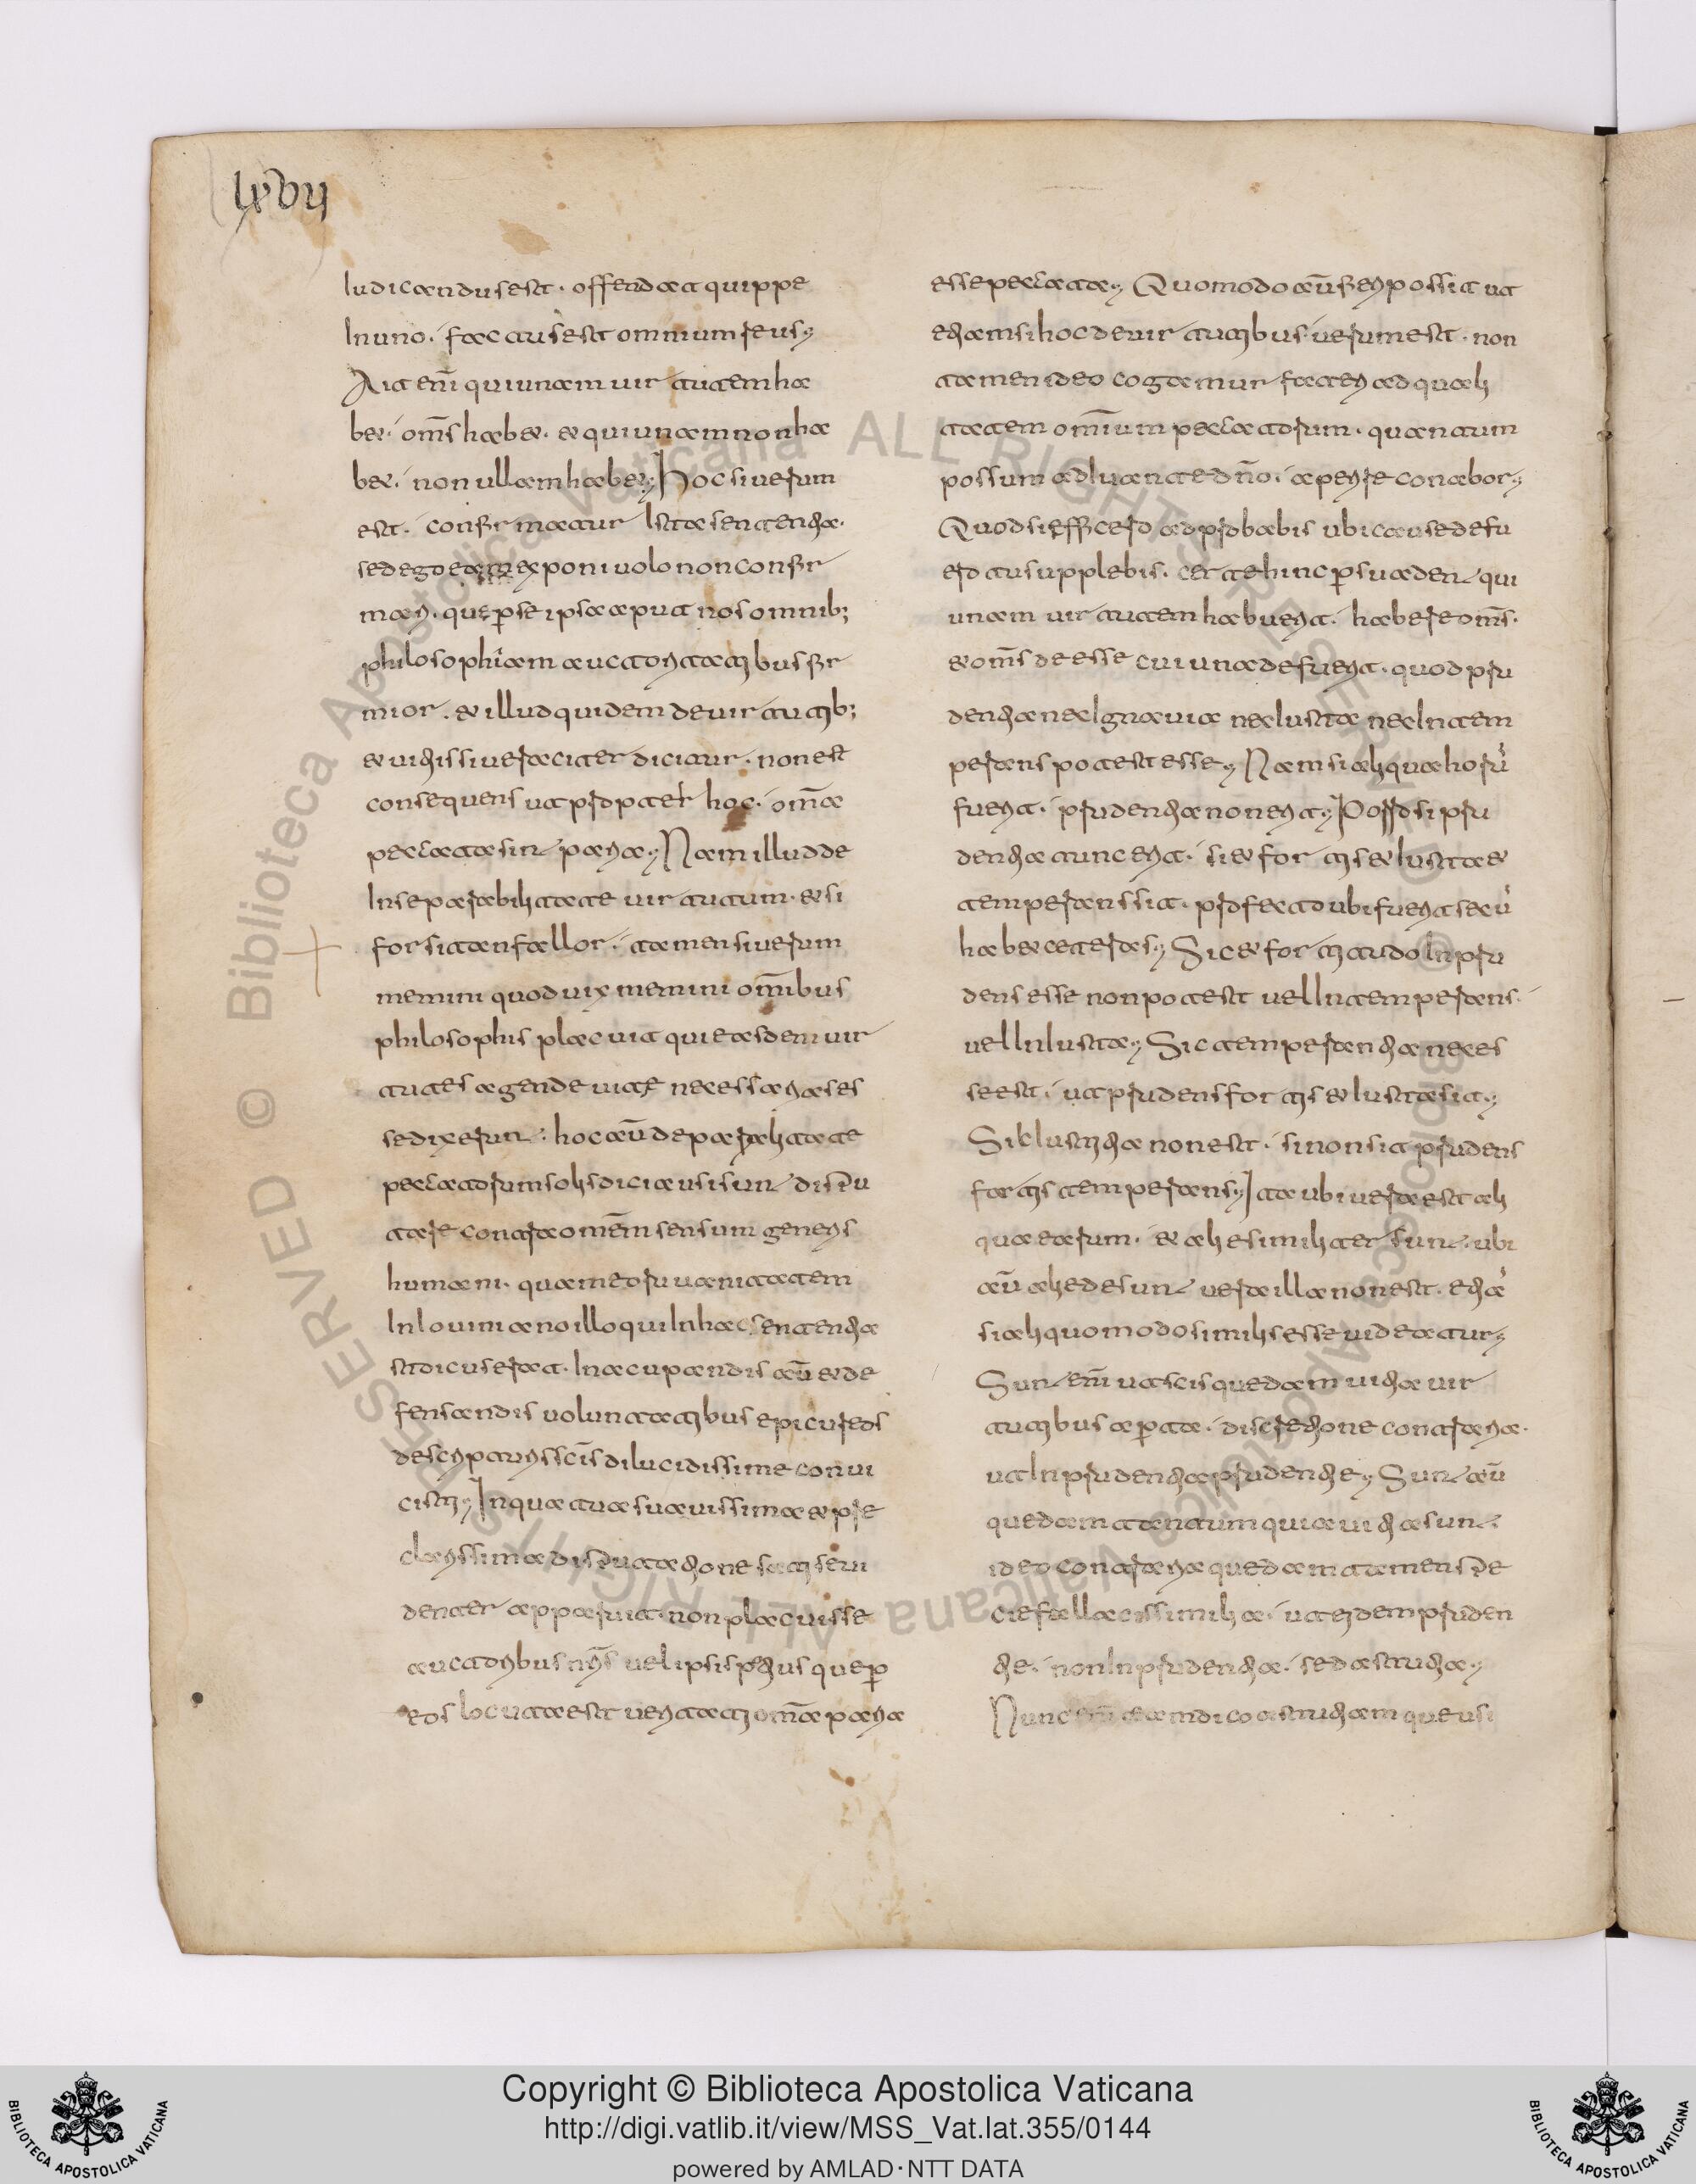 lxvij
Iudicandus est · offendat quippe
In uno · factus est omnium reus;
Ait enī qui unam uirtutem ha
bet · om̄s habet · et qui unam non ha
bet · non ullam habet; Hoc si uerum
est · confirmatur Ista sententia ·
sed ego eam exponi uolo non confir
mari · que ꝑse ipsa aput nos omnib;
philosophicam auctoritatibus fir
mior · et illud quidem de uirtutib;
et uitiis si ueraciter dicitur · non est
consequens ut propter hoc · om̄a
peccata sint paria; Nam illud de
Inseparabilitate uirtutum · etsi
forsitan fallor · tamen si uerum
memini quod uix memini om̄ibus
philosophis placuit qui easdem uir
tutes agende uitae necessarias es
se dixerunt · hoc aū de parilitate
peccatorum soli s dici ausi sunt dispu
tare contra om̄em sensum generis
humani · quam eorū uanitatem
In Iouiniano illo qui In hac sententia
stoicus erat · In aucupandis aū et de
fensandis uoluntatibus epicureos
de scripturis sc̄is dilucidissime conui
cisti; In qua tua suauissima et pre
clarissima disputatione satis eui
denter apparuit · non placuisse
auctoribus nr̄is uel ipsi s potius que ꝑ
eos locuta est ueritati om̄a paria
esse peccata; Quomodo aū fieri possit ut
etiam si hoc de uirtutibus uerum est · non
tamen ideo cogamur fateri aequali
tatem om̄ium peccatorum · quantum
possum adiuuante dn̄o · aperire conabor;
Quod si effecero adprobabis ubi causae defu
ero tu supplebis · certe hinc ꝑsuadent qui
unam uirtutem habuerit · habere om̄s ·
et om̄s deesse cui una defuerit · quod pru
dentia nec Ignauia nec Iusta nec Intem
perans potest esse; Nam si aliqua horū
fuerit · prudentia non erit; Porro si pru
dentia tunc erit · si et fortis et Iusta et
temperans sit · profecto ubi fuerit secū
habet ceteras; Sic et fortitudo Inpru
dens esse non potest uel Intemperans ·
uel Iniusta; Sic temperantia neces
se est · ut prudens fortis et Iusta sit;
Sic Iustitia non est · si non sit prudens
fortis temperans; Ita ubi uera est ali
qua earum · et alie similiter sunt · ubi
aū alie desunt uera illa non est · etiā
si aliquo modo similis esse uideatur;
Sunt enī ut scis quedam uitia uir
tutibus aperta · discretione contraria ·
ut Inprudentia prudentie; Sunt aū
quedam tantum quia uitia sunt ·
ideo contraria quedam tamen spe
cie fallaci similia · ut eidem pruden
tie · non Inprudentia · sed astutia;
Nunc enī eam dico astutiam que usi
Copyright © Biblioteca Apostolica Vaticana
http://digi.vatlib.it/view/MSS_Vat.lat.355/0144
powered by AMLAD·NTT DATA